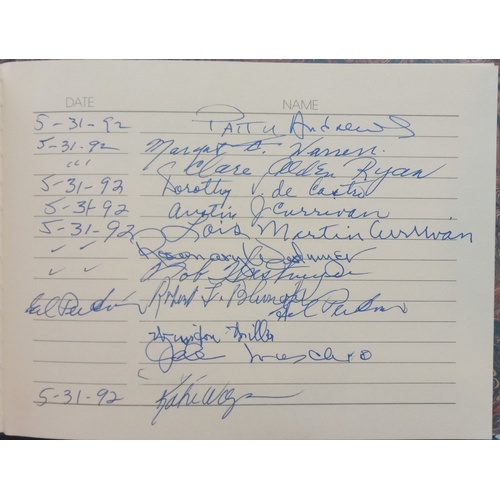 DATE NAME
5-31-92 Patty Andrews
5-31-92 Margaret E. Warren
" " " Clare Alden Ryan
5-31-92 Dorothy de Castro
5-31-92 Austin J Currivan
5-31-92 Lois Martin Currivan
✓ ✓ Rosemary
✓ ✓ Bob
Hal Perkins Robert L. Hal Perkins
Winston Miller
Joe
5-31-92 Kathi